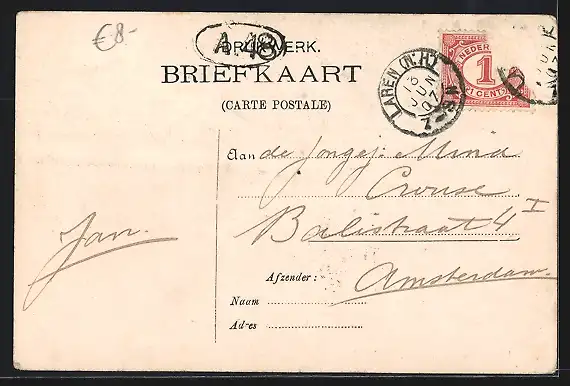 €8-
A. 48
DRUKWERK.
BRIEFKAART
(CARTE POSTALE)
LAREN (N.H)
JUN
07
NEDER
1
CENT
Aan de Jongej: Mina
Crouse
Balistraat 4 I
Amsterdam.
Jan.
Afzender:
Naam
Ad-es